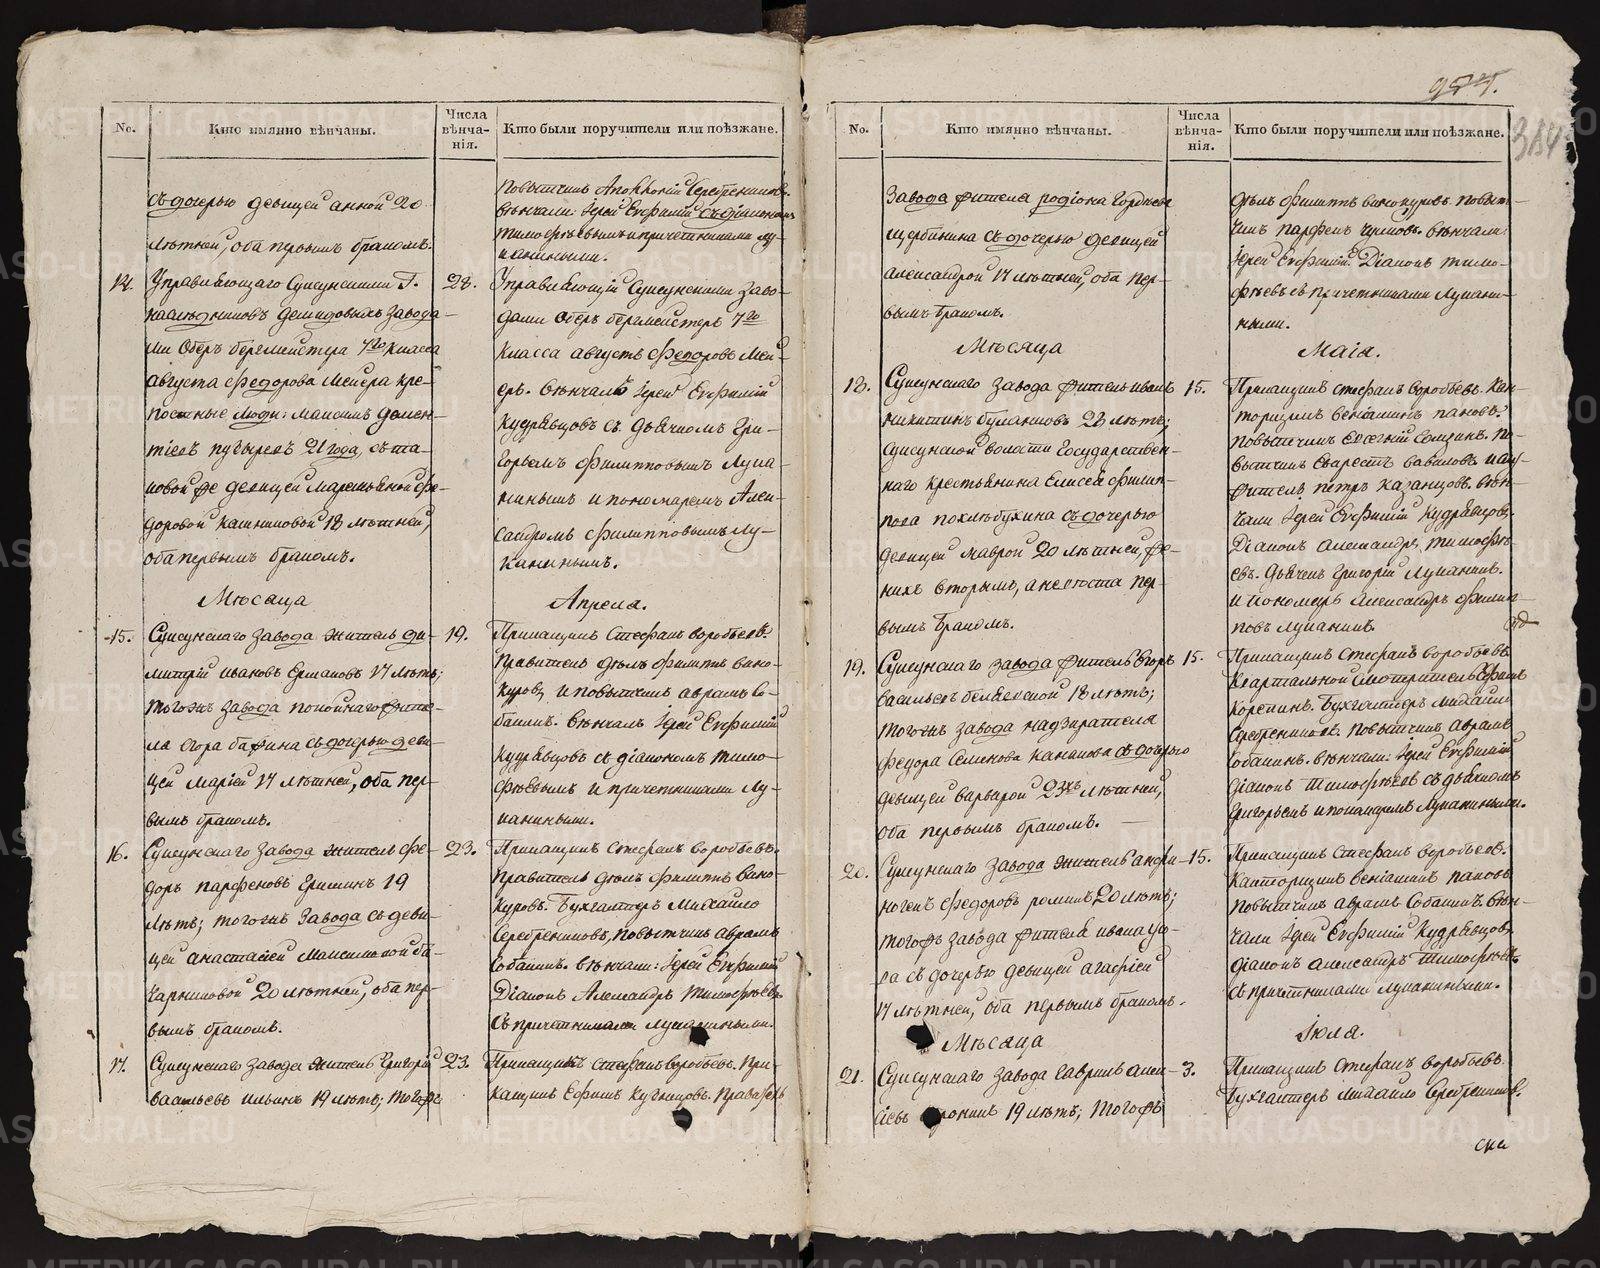 No.
Кто имянно вѣнчаны.
Числа вѣнча-
нія.
Кто были поручители или поѣзжане.
съ дочерью девицей анной 20
лѣтней, оба первымъ бракомъ.
Повытчикъ Серебрениковъ.
вѣнчали: Іерей Евфимій съ діакономъ
тимофѣевымъ и причетниками лу-
каниными.
14.
Управляющаго Сусунскими Г.
наслѣдниковъ демидовыхъ завода-
ми Оберъ бергмейстера 7го класса
августа федорова Мейера кре-
постные люди: Максимъ демен-
тіевъ пузыревъ 21 года, съ та-
ковой же девицей Маремьяной фе-
доровой калининовой 18 лѣтней,
оба первымъ бракомъ.
28.
Управляющій Сусунскими заво-
дами Оберъ бергмейстеръ 7го
класса августъ федоровъ Мей-
еръ. вѣнчалъ Іерей Евфимій
Кудрявцовъ съ дьячкомъ Гри-
горьемъ филипповымъ Лука-
нинымъ и пономаремъ Алек-
сандромъ филипповымъ Лу-
канинымъ.
Мѣсяца
Апреля.
15.
Сусунскаго завода житель ди-
митрій ивановъ Ермаковъ 17 лѣтъ;
тогожъ завода покойнаго жите-
ля егора бажина съ дочерью деви-
цей Маріей 17 лѣтней, оба пер-
вымъ бракомъ.
19.
Прикащикъ Стефанъ воробьевъ.
Правитель дѣлъ филиппъ вино-
куровъ, и повытчикъ аврамъ Со-
банинъ. вѣнчалъ Іерей Евфимій
Кудрявцовъ съ діакономъ тимо-
фѣевымъ и причетниками Лу-
каниными.
16.
Сусунскаго завода житель фе-
доръ парфеновъ Ерминъ 19
лѣтъ; тогожъ завода съ деви-
цей анастасіей Максимовой ба-
20 лѣтней, оба пер-
вымъ бракомъ.
23.
Прикащикъ Стефанъ воробьевъ.
Правитель дѣлъ филиппъ вино-
куровъ. Бухгалтеръ Михайло
Серебрениковъ, повытчикъ аврамъ
Собанинъ. вѣнчали: Іерей Евфимій
Діаконъ Александръ тимофѣевъ
съ причетниками луканиными.
17.
Сусунскаго завода житель Григорій
васильевъ ильинъ 19 лѣтъ; тогожъ
23.
Прикащикъ стефанъ воробьевъ. При-
кащикъ Ефимъ Кузнецовъ. Правитель
957.
384
No.
Кто имянно вѣнчаны.
Числа вѣнча-
нія.
Кто были поручители или поѣзжане.
завода жителя родіона Гордѣева
щербинина съ дочерью девицей
александрой 17 лѣтней, оба пер-
вымъ бракомъ.
дѣлъ филиппъ винокуровъ. повыт-
чикъ парфенъ вѣнчали:
Іерей Евфимій. Діаконъ тимо-
фѣевъ съ причетниками Лукани-
ными.
Мѣсяца
Маія.
18.
Сусунскаго завода житель иванъ
никитинъ булаковъ 28 лѣтъ;
Сусунской волости Государствен-
наго крестьянина Елисея филип-
пова похлѣбухина съ дочерью
девицей маврой 20 лѣтней, же-
нихъ вторымъ, а невѣста пер-
вымъ бракомъ.
15.
Прикащикъ стефанъ воробьевъ. Кан-
торщикъ веніаминъ пановъ.
Повытчикъ Евгеній Сощинъ. По-
вытчикъ Еварестъ вавиловъ и слу-
житель петръ казанцовъ. вѣн-
чали Іерей Евфимій Кудрявцовъ.
Діаконъ александръ, тимофѣ-
евъ. дьячекъ Григорій Луканинъ.
и пономарь александръ филип-
повъ луканинъ.
19.
Сусунскаго завода житель Егоръ
васильевъ беляевской 18 лѣтъ;
тогожъ завода надзирателя
федора Семенова Каракова съ дочерью
девицей варварой 23хъ лѣтней,
оба первымъ бракомъ.
15.
Прикащикъ стефанъ воробьевъ.
Квартальной смотритель Ефимъ
Корепинъ. Бухгалтеръ михайло
Серебрениковъ. повытчикъ аврамъ
собанинъ. вѣнчали: Іерей Евфимій
діаконъ Тимофѣевъ съ дьячкомъ
Григорьемъ и пономаремъ Луканиными.
20.
Сусунскаго завода житель анфи-
ногенъ федоровъ роминъ 20 лѣтъ;
тогожъ завода жителя ивана
съ дочерью девицей агафіей
17 лѣтней, оба первымъ бракомъ.
15.
Прикащикъ стефанъ воробьевъ.
Канторщикъ веніаминъ пановъ
повытчикъ аврамъ Собанинъ. вѣн-
чали Іерей Евфимій Кудрявцовъ.
діаконъ александръ Тимофѣевъ.
съ причетниками Луканиными.
Мѣсяца
Іюля.
21.
Сусунскаго завода гаврилъ алек-
19 лѣтъ; тогожъ
3.
Прикащикъ стефанъ воробьевъ.
Бухгалтеръ Михайло Серебрениковъ.